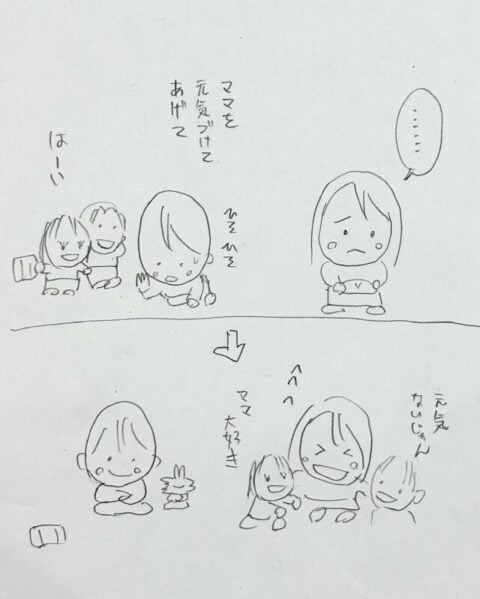 ・・・・・・・
ママを
元気づけて
あげて
ひそひそ
はーい
元気
ないじゃん
へへへ
ママ
大好き